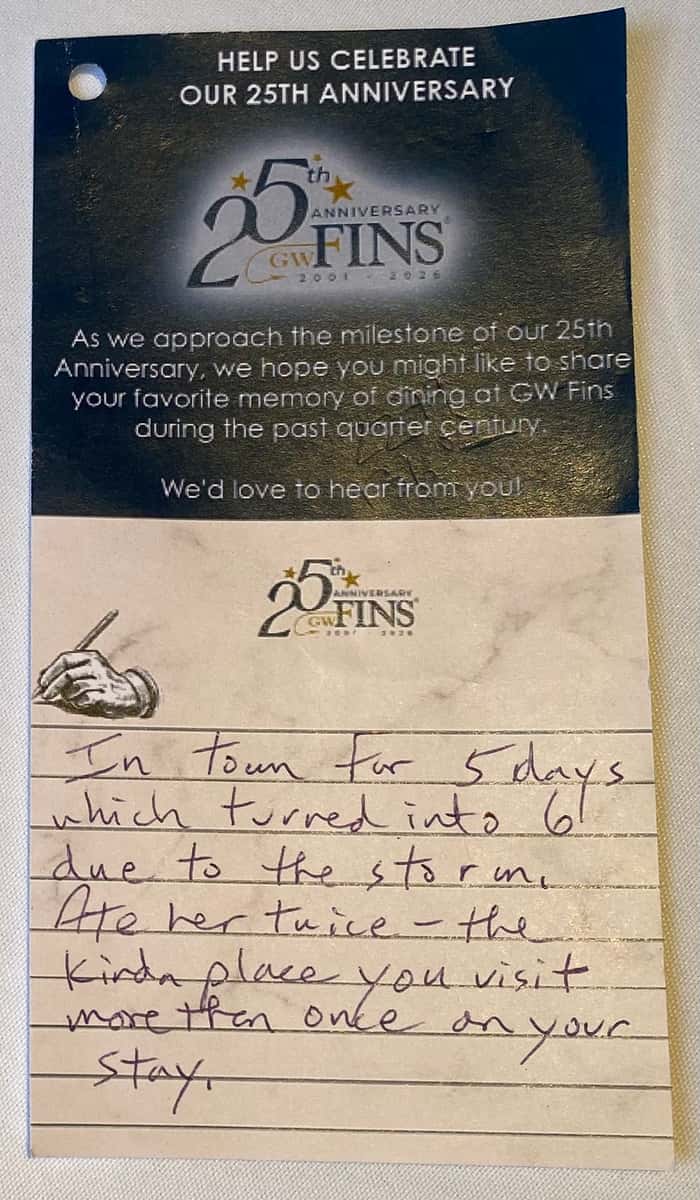 HELP US CELEBRATE
OUR 25TH ANNIVERSARY
25th
ANNIVERSARY
GW FINS®
2001 - 2026
As we approach the milestone of our 25th
Anniversary, we hope you might like to share
your favorite memory of dining at GW Fins
during the past quarter century.
We'd love to hear from you!
25th
ANNIVERSARY
GW FINS®
2001 - 2026
In town for 5 days
which turned into 6
due to the storm.
Ate her twice – the
kinda place you visit
more than once on your
stay.